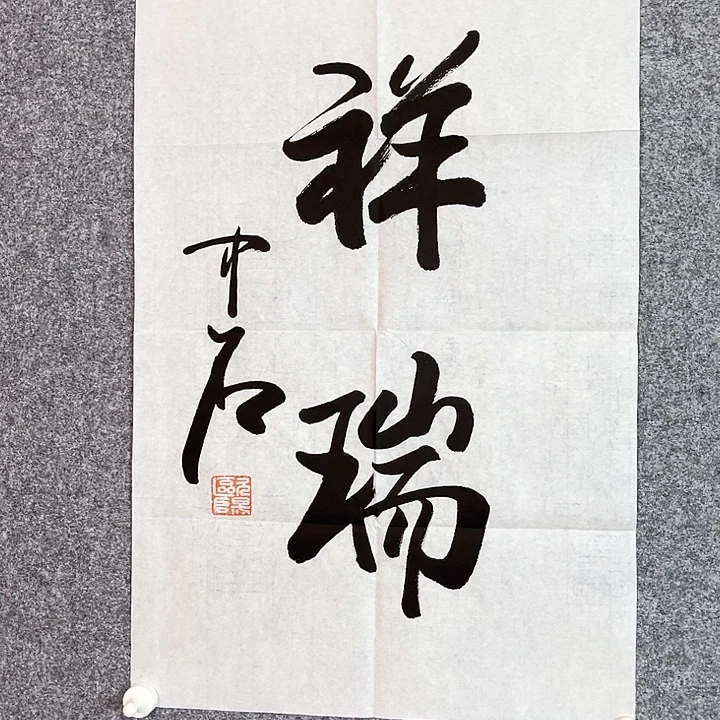 祥瑞
中石